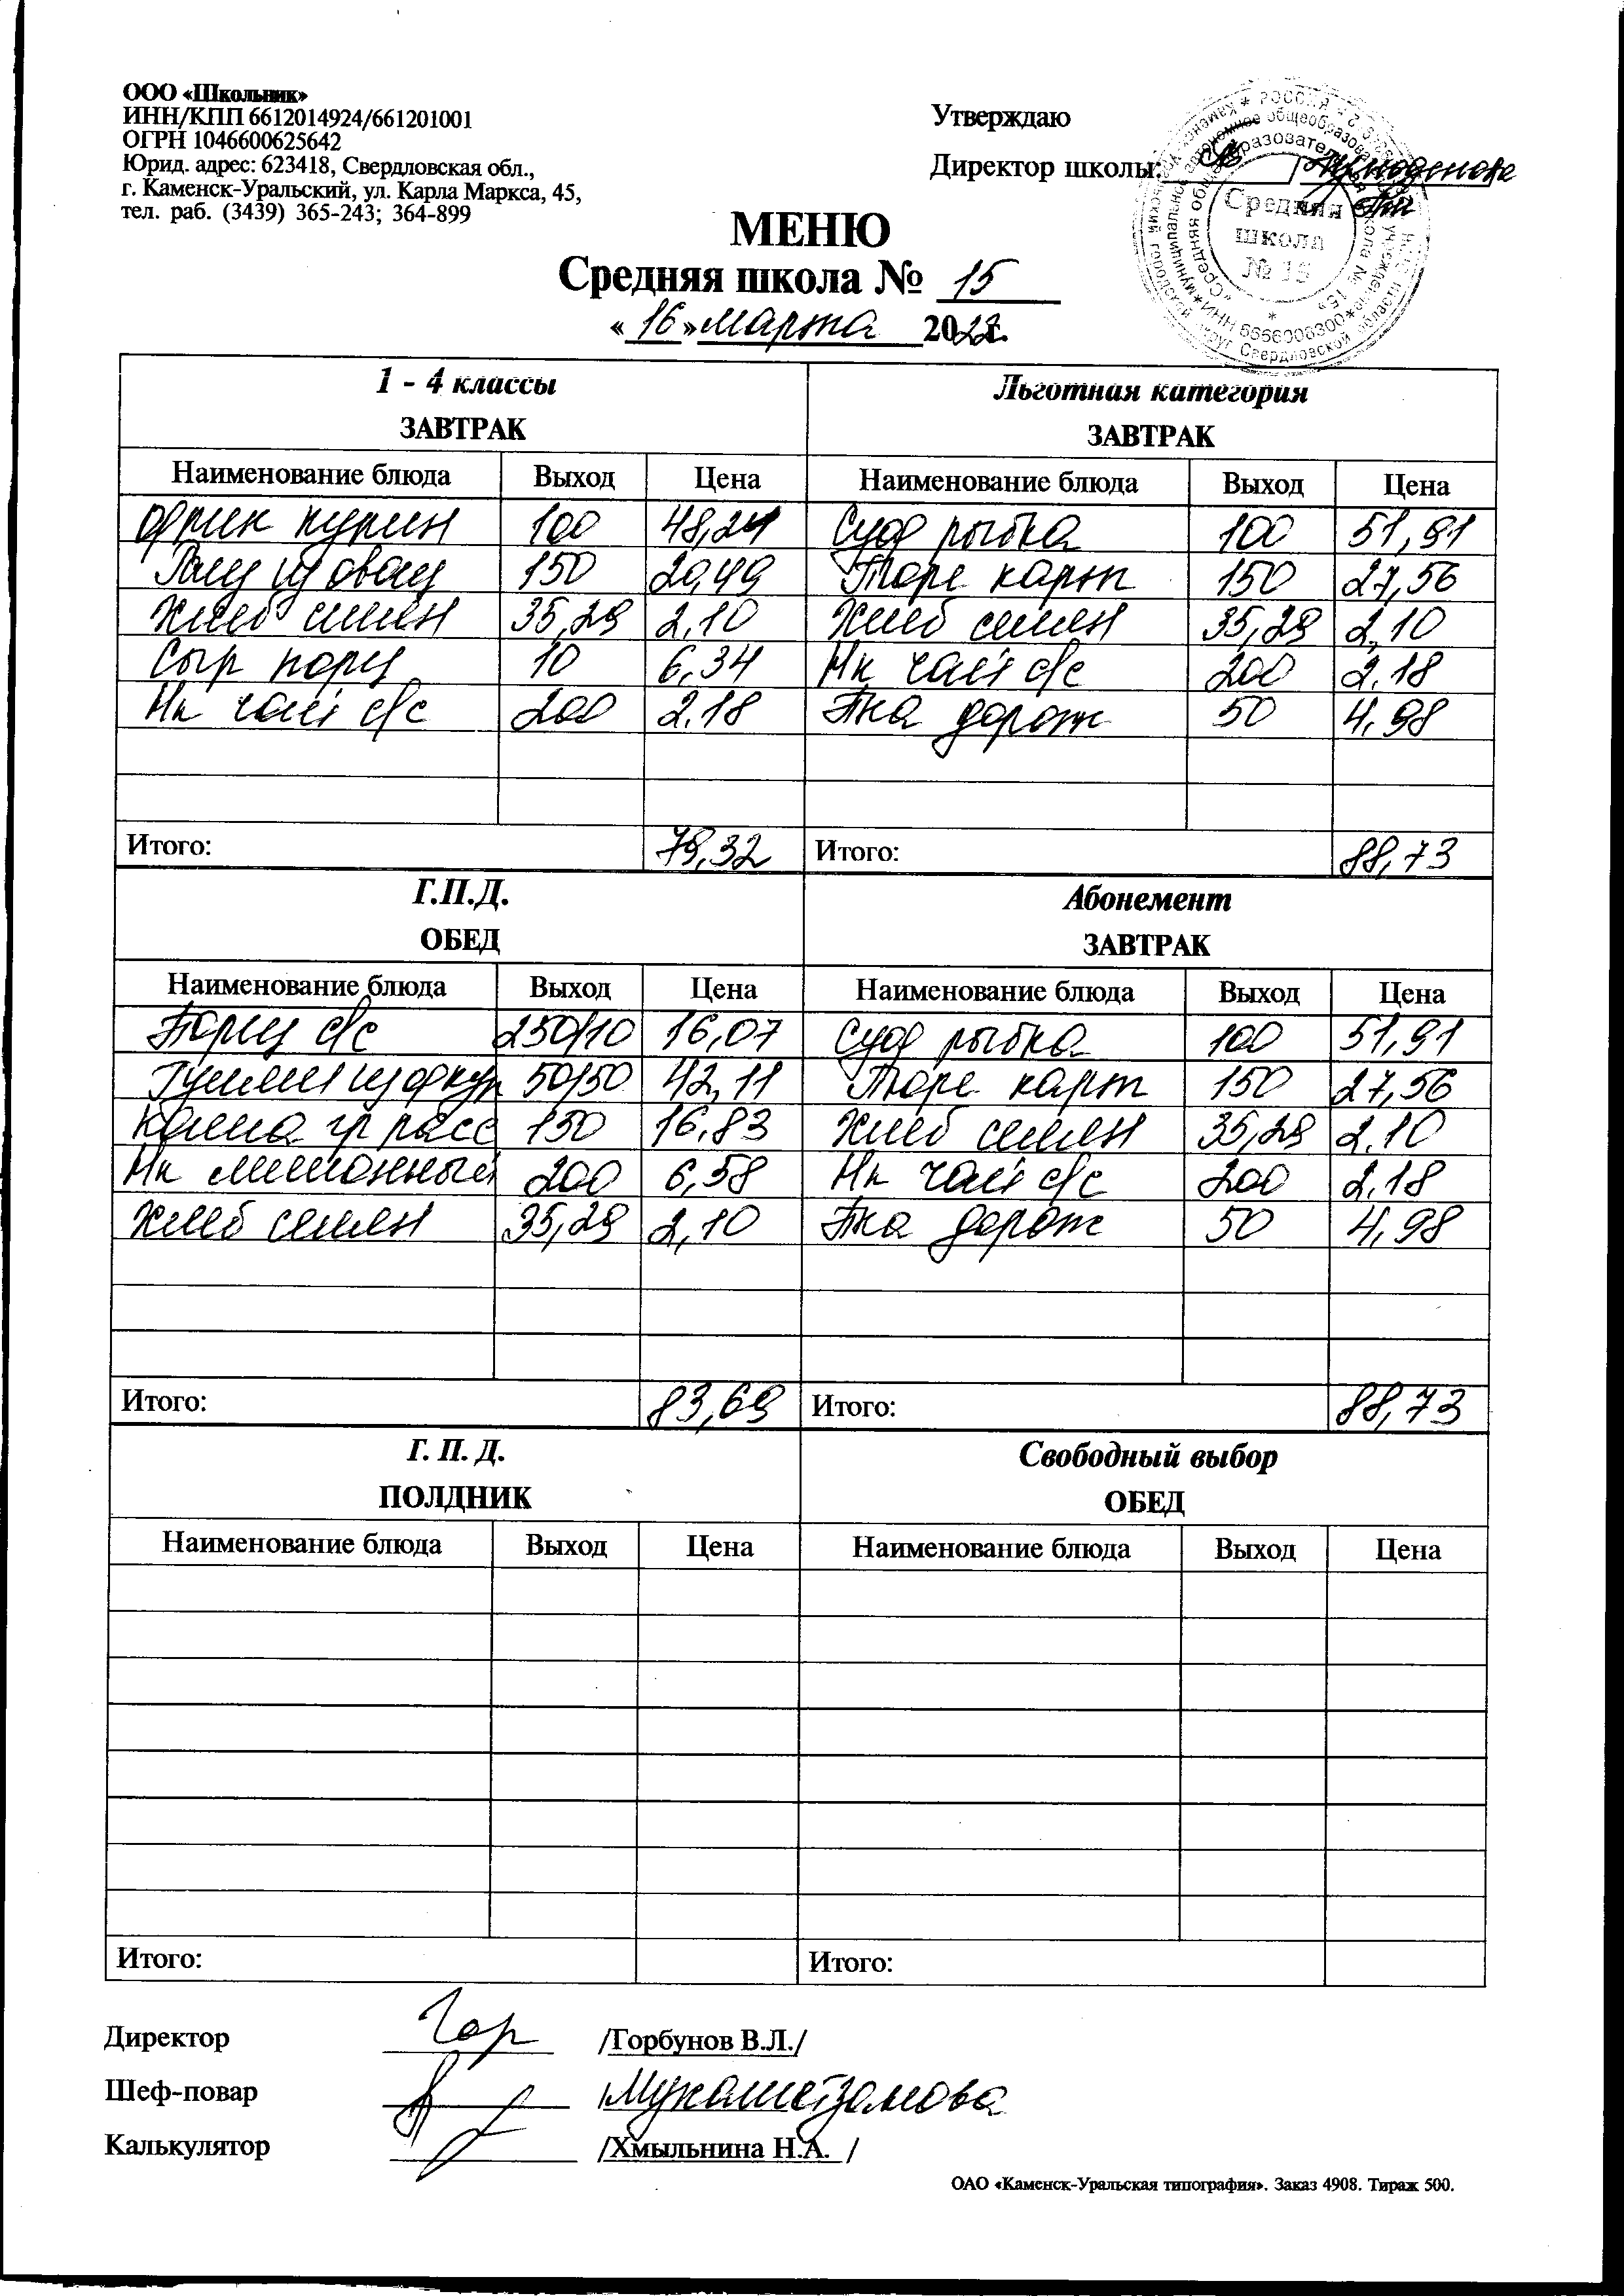 ООО «Школьник»
ИНН/КПП 6612014924/661201001
ОГРН 1046600625642
Юрид. адрес: 623418, Свердловская обл.,
г. Каменск-Уральский, ул. Карла Маркса, 45,
тел. раб. (3439) 365-243; 364-899
Утверждаю
Директор школы:
Средняя
школа
№ 15
МЕНЮ
Средняя школа № 15
«16» марта 2022г.
1 - 4 классы
ЗАВТРАК
Наименование блюда Выход Цена
фрик курин 100 48,21
Рагу из овощ 150 20,49
Хлеб семен 35,29 2,10
Сыр порц 10 6,34
Нк чай с/с 200 2,18
Итого: 79,32
Льготная категория
ЗАВТРАК
Наименование блюда Выход Цена
Суф рыбка 100 51,91
Пюре карт 150 27,56
Хлеб семен 35,29 2,10
Нк чай с/с 200 2,18
Пка дорож 50 4,98
Итого: 88,73
Г.П.Д.
ОБЕД
Наименование блюда Выход Цена
Борщ с/с 250/10 16,07
Гуляш из фкур 50/50 42,11
Каша гр расс 150 16,83
Нк лимонный 200 6,58
Хлеб семен 35,29 2,10
Итого: 83,69
Абонемент
ЗАВТРАК
Наименование блюда Выход Цена
Суф рыбка 100 51,91
Пюре карт 150 27,56
Хлеб семен 35,29 2,10
Нк чай с/с 200 2,18
Пка дорож 50 4,98
Итого: 88,73
Г. П. Д.
ПОЛДНИК
Наименование блюда Выход Цена
Итого:
Свободный выбор
ОБЕД
Наименование блюда Выход Цена
Итого:
Директор /Горбунов В.Л./
Шеф-повар
Калькулятор /Хмыльнина Н.А. /
ОАО «Каменск-Уральская типография». Заказ 4908. Тираж 500.